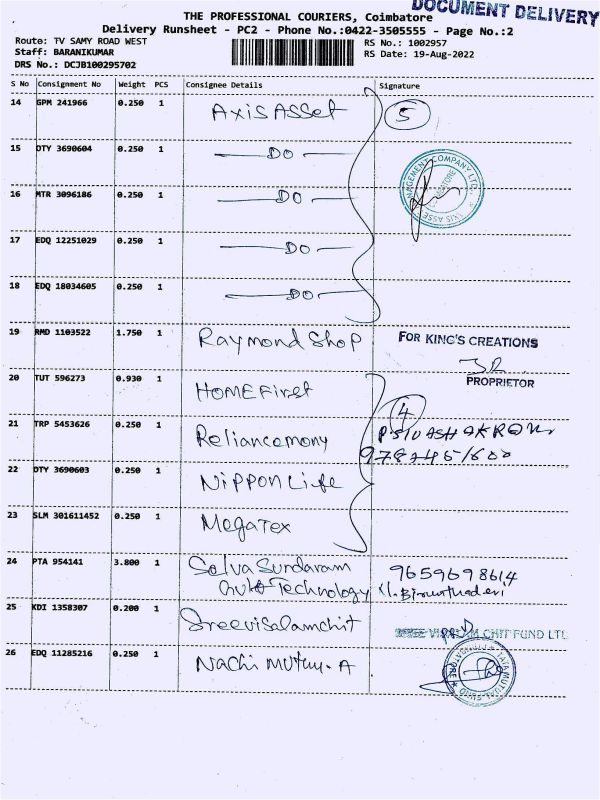 DOCUMENT DELIVERY
THE PROFESSIONAL COURIERS, Coimbatore
Delivery Runsheet - PC2 - Phone No.:0422-3505555 - Page No.:2
Route: TV SAMY ROAD WEST RS No.: 1002957
Staff: BARANIKUMAR RS Date: 19-Aug-2022
DRS No.: DCJB100295702
S No Consignment No Weight PCS Consignee Details Signature
14 GPM 241966 0.250 1 Axis Asset 5
15 OTY 3690604 0.250 1 DO
16 MTR 3096186 0.250 1 DO
17 EDQ 12251029 0.250 1 DO
18 EDQ 18034605 0.250 1 DO
19 RMD 1103522 1.750 1 Raymond Shop FOR KING'S CREATIONS
PROPRIETOR
20 TUT 596273 0.930 1 HOME First 4
21 TRP 5453626 0.250 1 Reliancemony
22 OTY 3690603 0.250 1 Nippon Life
23 SLM 301611452 0.250 1 Megatex
24 PTA 954141 3.800 1 Selva Sundaram 9659698614
Auto Technology
25 KDI 1358307 0.200 1 Sreevisalamchit
CHIT FUND LTD
26 EDQ 11285216 0.250 1 Nachi Mutuu.A
TATA MUTUAL FUND